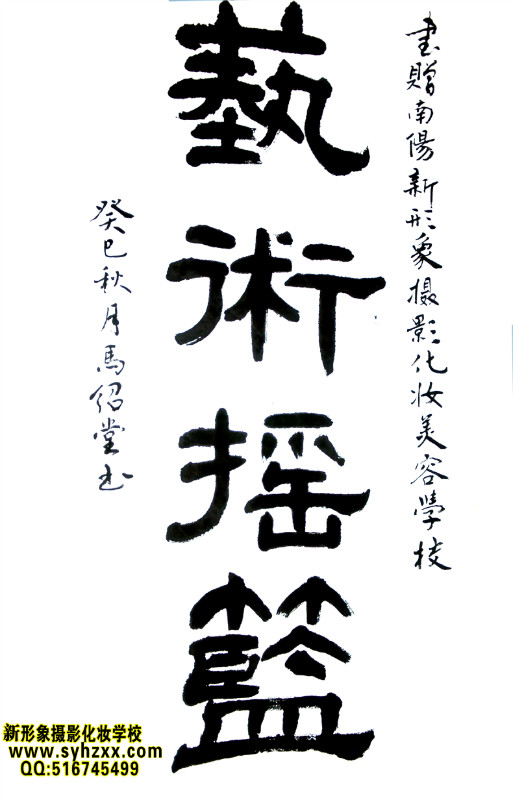 書贈南陽新形象摄影化妆美容學校
藝術摇籃
癸巳秋月馬绍堂书
新形象摄影化妆学校
www.syhzxx.com
QQ:516745499